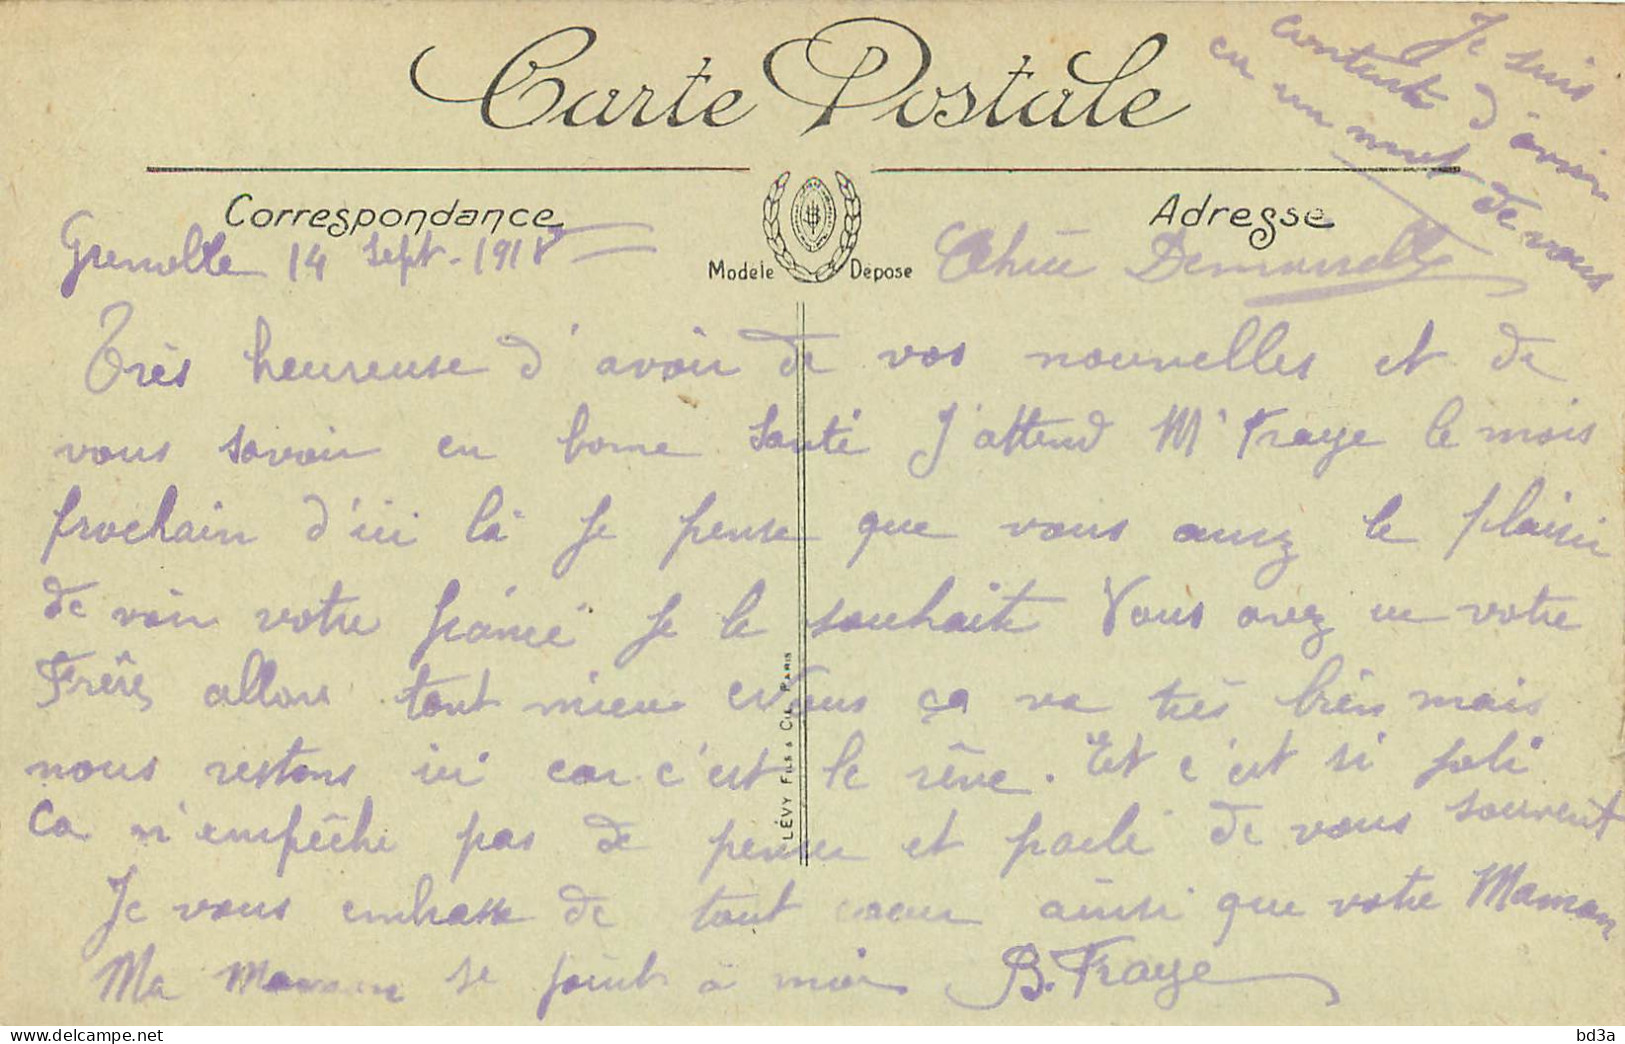 Carte Postale
Je suis
contente d'avoir
eu un mot de vous
Correspondance
Adresse
Modèle Déposé
Grenoble 14 Sept. 1918
Chère Demoiselle
Très heureuse d'avoir de vos nouvelles et de
vous savoir en bonne Santé J'attend Mr Fraye le mois
prochain d'ici là Je pense que vous aurez le plaisir
de voir votre fiancé Je le souhaite Vous avez vu votre
Frère, allons tant mieux Nous ça va très bien mais
nous restons ici car c'est le rêve. Et c'est si joli
Ca n'empêche pas de penser et parlé de vous souvent
Je vous embrasse de tout coeur ainsi que votre Maman
Ma Maman se joint à moi B. Fraye
LÉVY FILS & CIE, PARIS
bd3a